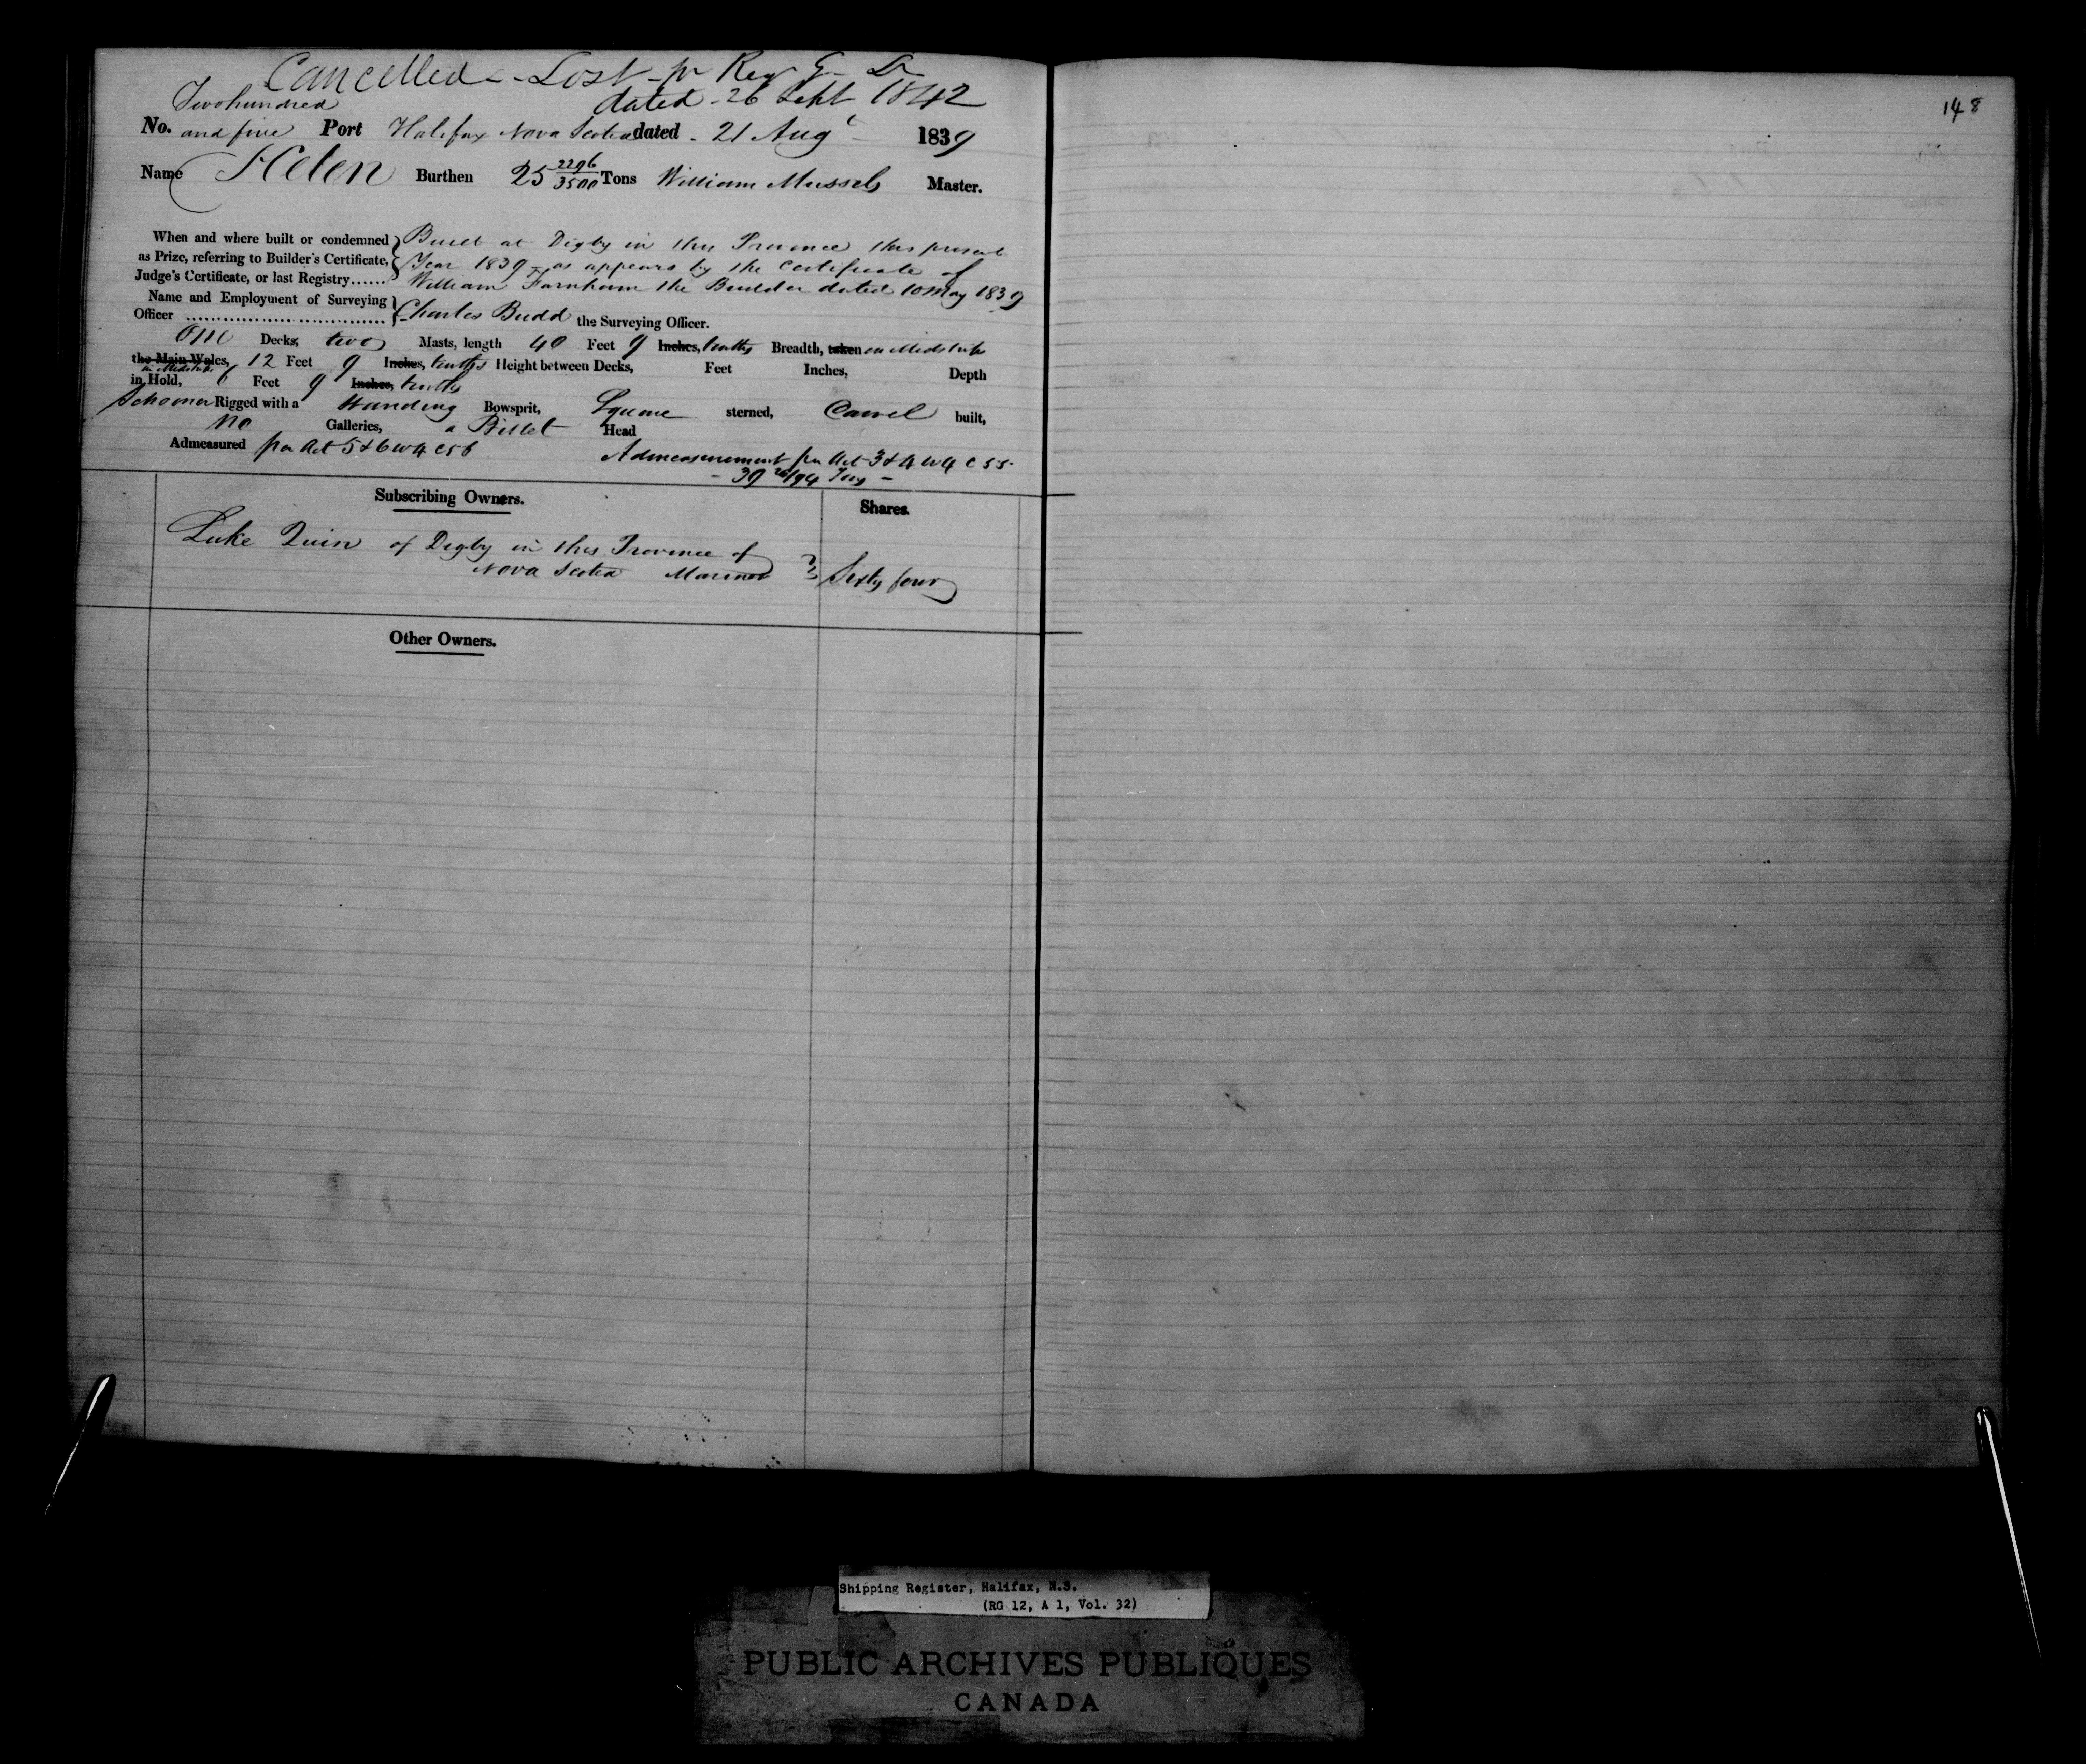 Cancelled - Lost - pr Reg G
dated - 26 Sept 1842
148
Two hundred
No. and five Port Halifax Nova Scotia dated - 21 Augt 1839
Name Helen Burthen 25 2296/3500 Tons William Mussels Master.
When and where built or condemned as Prize, referring to Builder's Certificate, Judge's Certificate, or last Registry......
Built at Digby in this Province this present
Year 1839 - as appears by the Certificate of
William Farnham the Builder dated 10 May 1839
Name and Employment of Surveying Officer ...............................
Charles Budd the Surveying Officer.
One Decks, two Masts, length 40 Feet 9 Inches, tenths Breadth, taken in Midships
the Main Wales, 12 Feet 9 Inches, tenths Height between Decks, Feet Inches, Depth
in Midships
in Hold, 6 Feet 9 Inches, tenths
Schooner Rigged with a Standing Bowsprit, Square sterned, Carvel built,
No Galleries, a Billet Head
Admeasured pr Act 5 & 6 W 4 C 56 Admeasurement pr Act 3 & 4 W 4 C 55.
- 39 26/94 Tons -
Subscribing Owners. Shares.
Luke Quin of Digby in this Province of
Nova Scotia Mariner Sixty four
Other Owners.
Shipping Register, Halifax, N.S.
(RG 12, A 1, Vol. 32)
PUBLIC ARCHIVES PUBLIQUES
CANADA